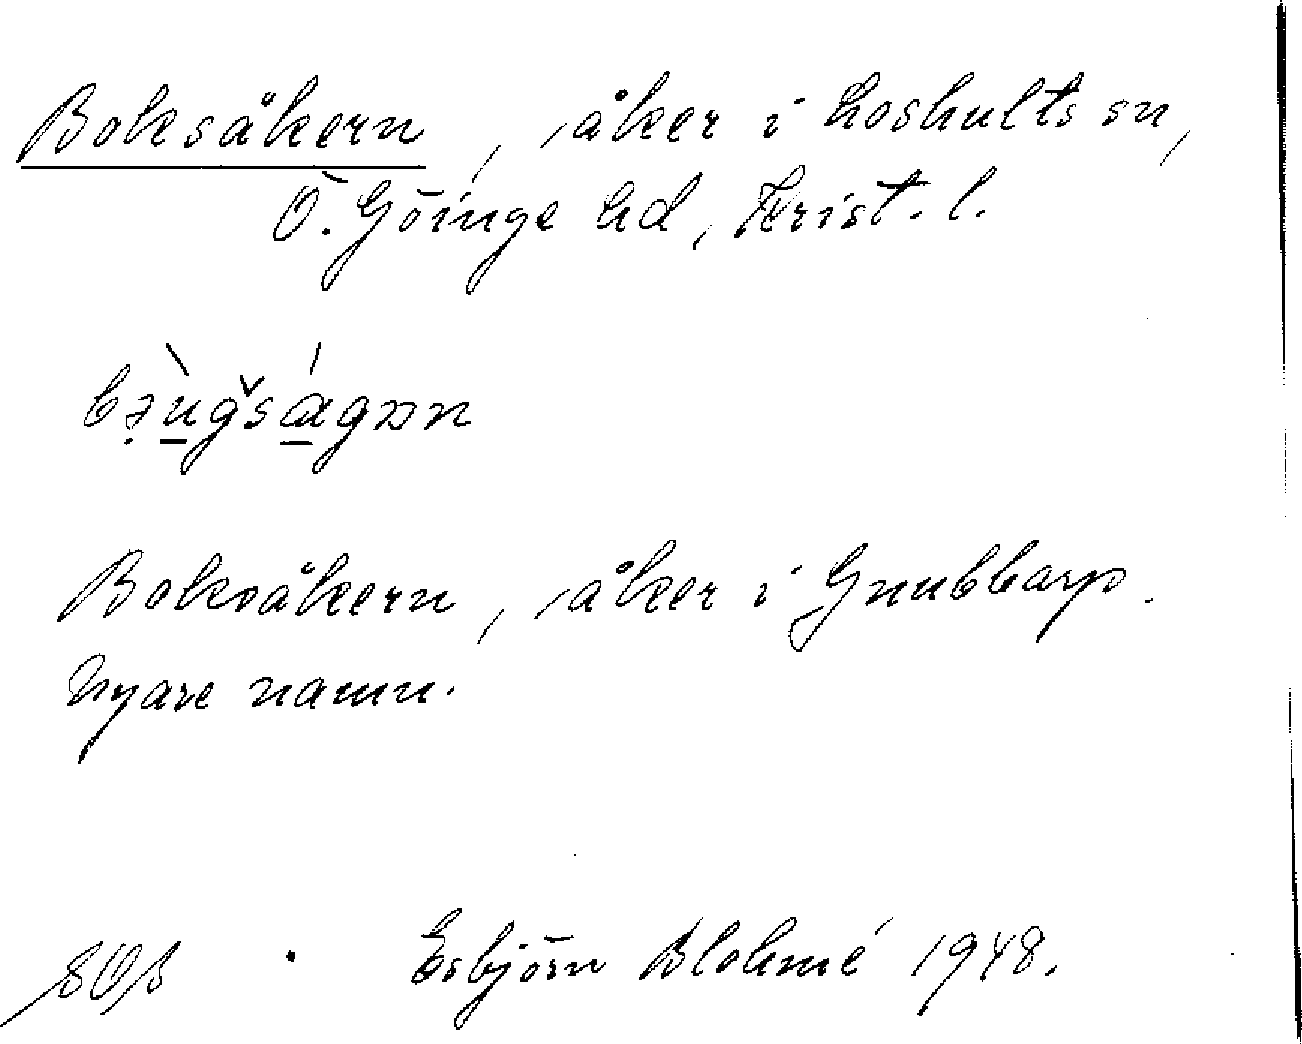 Boksåkern, åker i Loshults sn,
Ö. Göinge hd, Krist. l.
Boksåkern, åker i Gnubbarp.
Nyare namn.
Esbjörn Blohmé 1948.